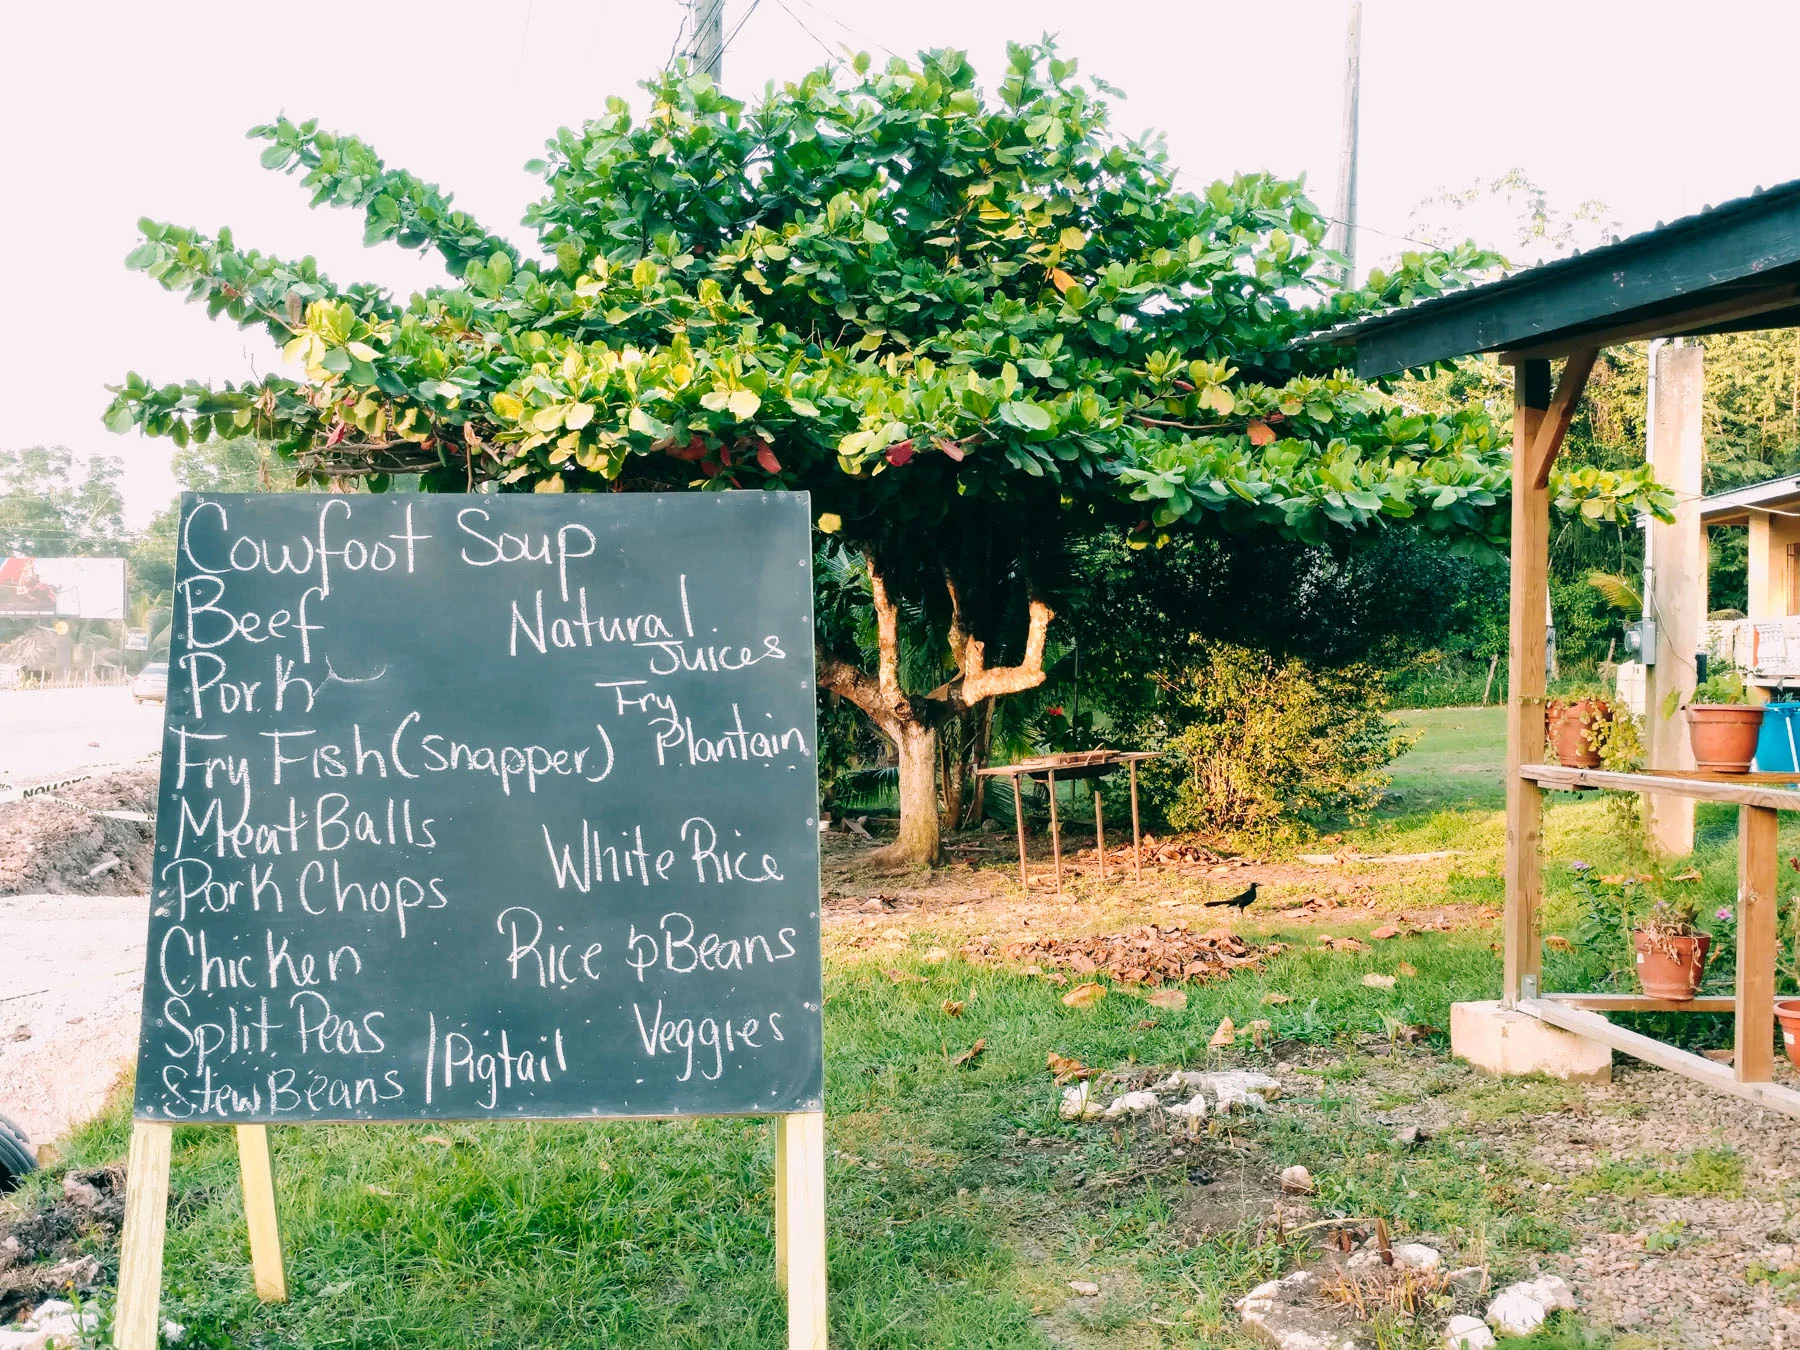 Cowfoot Soup
Beef
Pork
Fry Fish (snapper)
Meat Balls
Pork Chops
Chicken
Split Peas
Stew Beans / Pigtail
Natural
Juices
Fry
Plantain
White Rice
Rice & Beans
Veggies